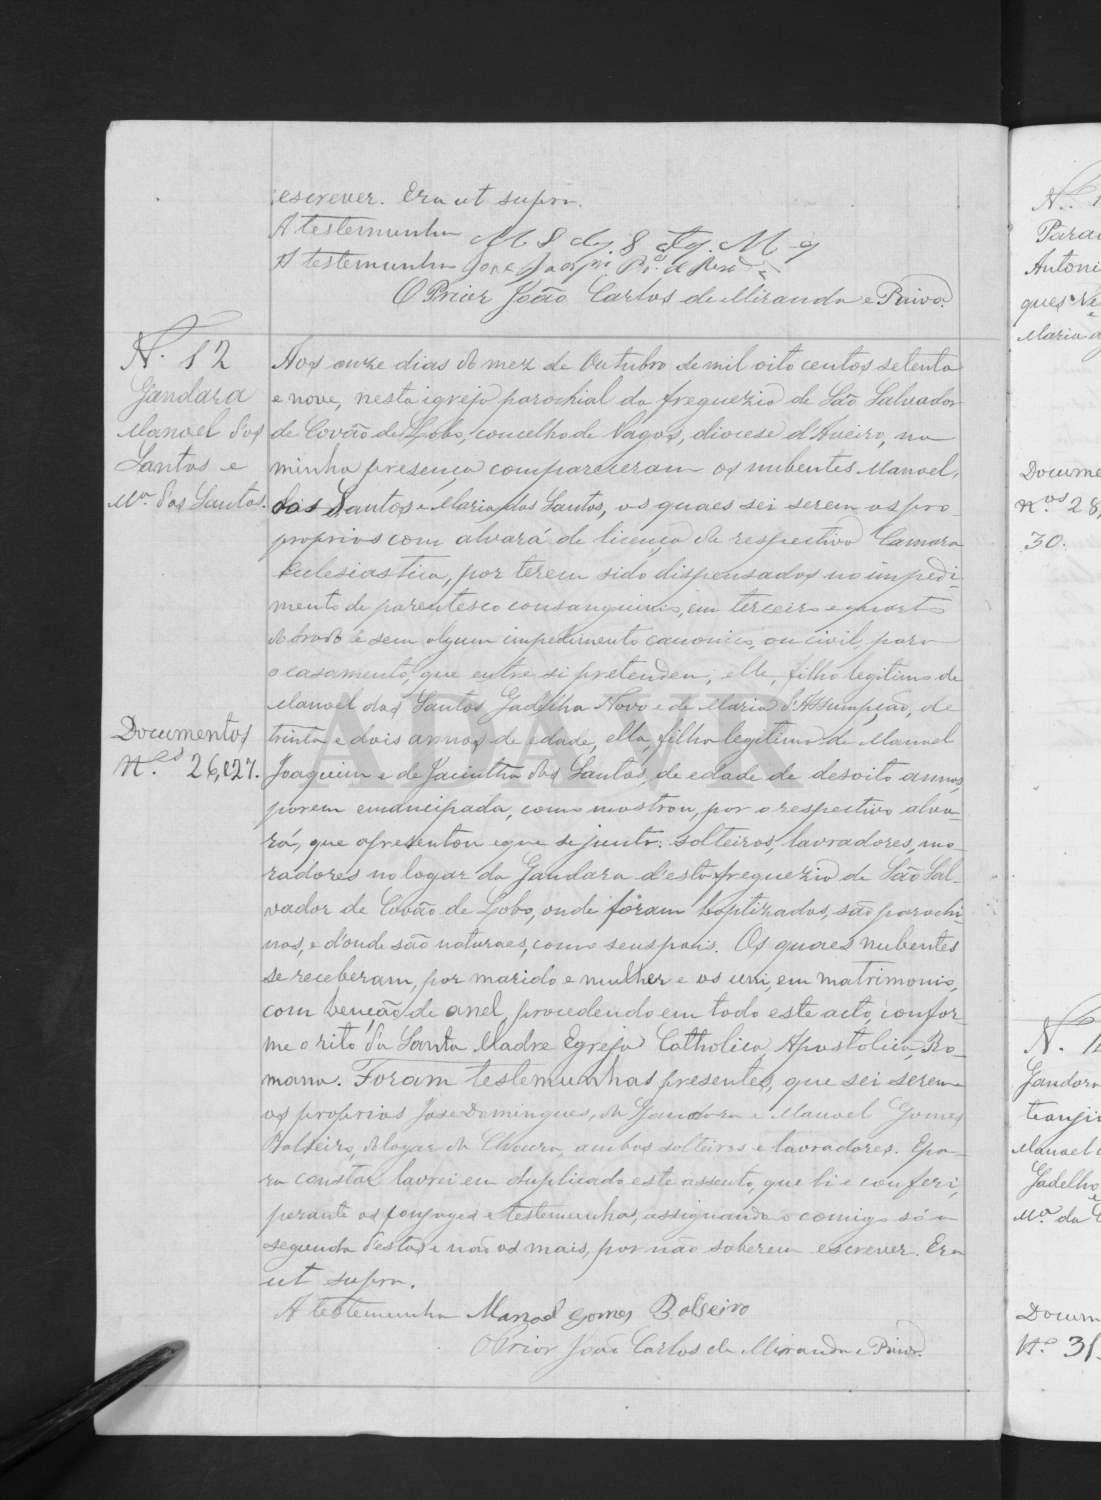 escrever. Era ut supra.
A testemunha
A testemunha
O Prior João Carlos de Miranda e Paiva.
N. 12
Gandara
Manoel dos
Santos e
Ma. dos Santos.
Aos onze dias do mez de Outubro de mil oito centos setenta
e nove, nesta igreja parochial da freguezia de São Salvador
de Covão de Lobo, concelho de Vagos, diocese d'Aveiro, na
minha presença compareceram os nubentes Manoel,
dos Santos e Maria dos Santos, os quaes sei serem os pro-
proprios com alvará de licença da respectiva Camara
Eclesiastica, por terem sido dispensados no impedi-
mento de parentesco consanguineo, em terceiro e quarto
e sem algum impedimento canonico, ou civil, para
o casamento, que entre si pretendem; elle, filho legitimo de
Manoel dos Santos Gadelha Novo e de Maria d'Assumpção, de
trinta e dois annos de edade, ella, filha legitima de Manoel
Joaquim e de Jacintha dos Santos, de edade de desoito annos,
porem emancipada, como mostrou, por o respectivo alva-
rá, que apresentou e que se junta. Solteiros, lavradores, mo-
radores no logar da Gandara d'esta freguezia de São Sal-
vador de Covão de Lobo, onde foram baptizados, são parochi-
nos, e d'onde são naturaes, como seus pais. Os quaes nubentes
se receberam, por marido e mulher e os uni, em matrimonio,
com benção de anel, procedendo em todo este acto, confor-
me o rito da Santa Madre Egreja Catholica, Apostolica, Ro-
mana. Foram testemunhas presentes, que sei serem
os proprios Jose Domingues, da Gandara e Manoel Gomes
Bolseiro, do logar da ambos solteiros e lavradores. E pa-
ra constar lavrei em duplicado este assento, que li e conferi,
perante os conjuges e testemunhas, assignando comigo só a
segunda d'estas e não os mais, por não saberem escrever. Era
ut supra.
A testemunha Manoel Gomes Bolseiro
O Prior João Carlos de Miranda e Paiva.
Documentos
N.os 26, e 27.
Antoni
ques
Maria
Docume
n.os 28,
30.
N. 1
Gandara
Manoel
Gadelho
e
Ma. da
Docum
N.o 31.